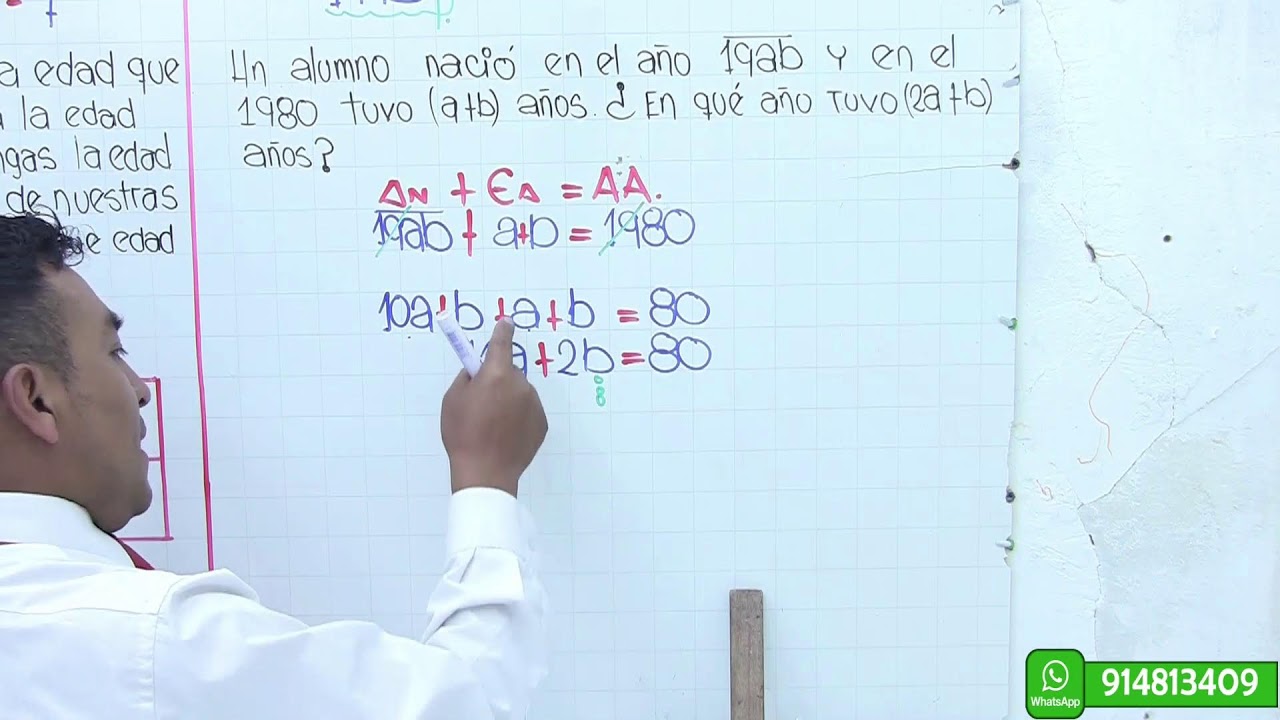 a edad que
la edad
gas la edad
de nuestras
edad
Un alumno nació en el año 19ab y en el
1980 tuvo (a+b) años. ¿En qué año tuvo (2a+b)
años?
AN + EA = AA.
19ab + a+b = 1980
10a+b+a+b = 80
a+2b=80
0
8
WhatsApp
914813409